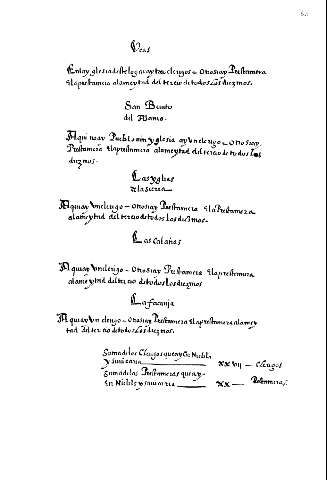 Veas
En la yglesia deste lugar ay tres clerigos – Otrosi ay Prestamera
y la prestamera a la meytad del tercio de todos los diezmos.
San Benito
del Alamo.
Aqui no ay Pueblo sin yglesia ay un clerigo – Otrosi ay
Prestamera y la prestamera a la meytad del tercio de todos los
diezmos.
Las ygles
de la sierra
Aqui ay Un clerigo – Otrosi ay Prestamera y la Prestamera
a la meytad del tercio de todos los diezmos.
Las Calañas
Aqui ay Un clerigo – Otrosi ay Prestamera y la prestamera
a la meytad del tercio de todos los diezmos
La facanja
Aqui ay Un clerigo – Otrosi ay Prestamera y la prestamera a la mey
tad del tercio de todos los diezmos.
Suma de los Clerigos que ay En Niebla
y su vicaria XXVII – Clerigos
Suma de las Prestameras que ay
En Niebla y su vicaria XX – Prestameras.